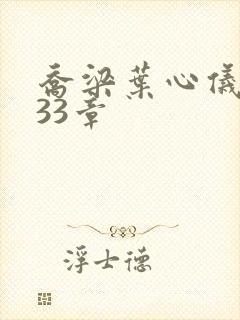 乔梁葉心儀
33章
浮士德